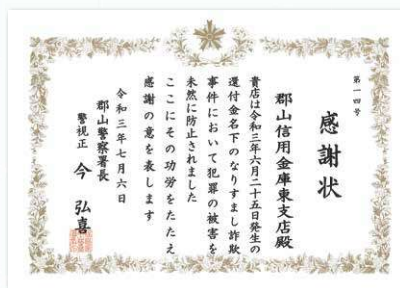 第一四号
感謝状
郡山信用金庫東支店殿
貴店は令和三年六月二十五日発生の
還付金名下のなりすまし詐欺
事件において犯罪の被害を
未然に防止されました
ここにその功労をたたえ
感謝の意を表します
令和三年七月六日
郡山警察署長
警視正 今 弘喜